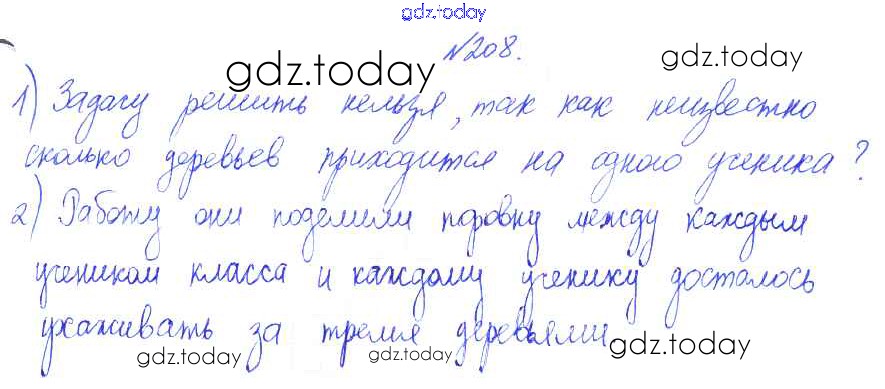 gdz.today
№208.
gdz.today
gdz.today
1) Задачу решить нельзя, так как неизвестно
сколько деревьев приходится на одного ученика?
2) Работу они поделили поровну между каждым
учеником класса и каждому ученику досталось
ухаживать за тремя деревьями
gdz.today
gdz.today
gdz.today